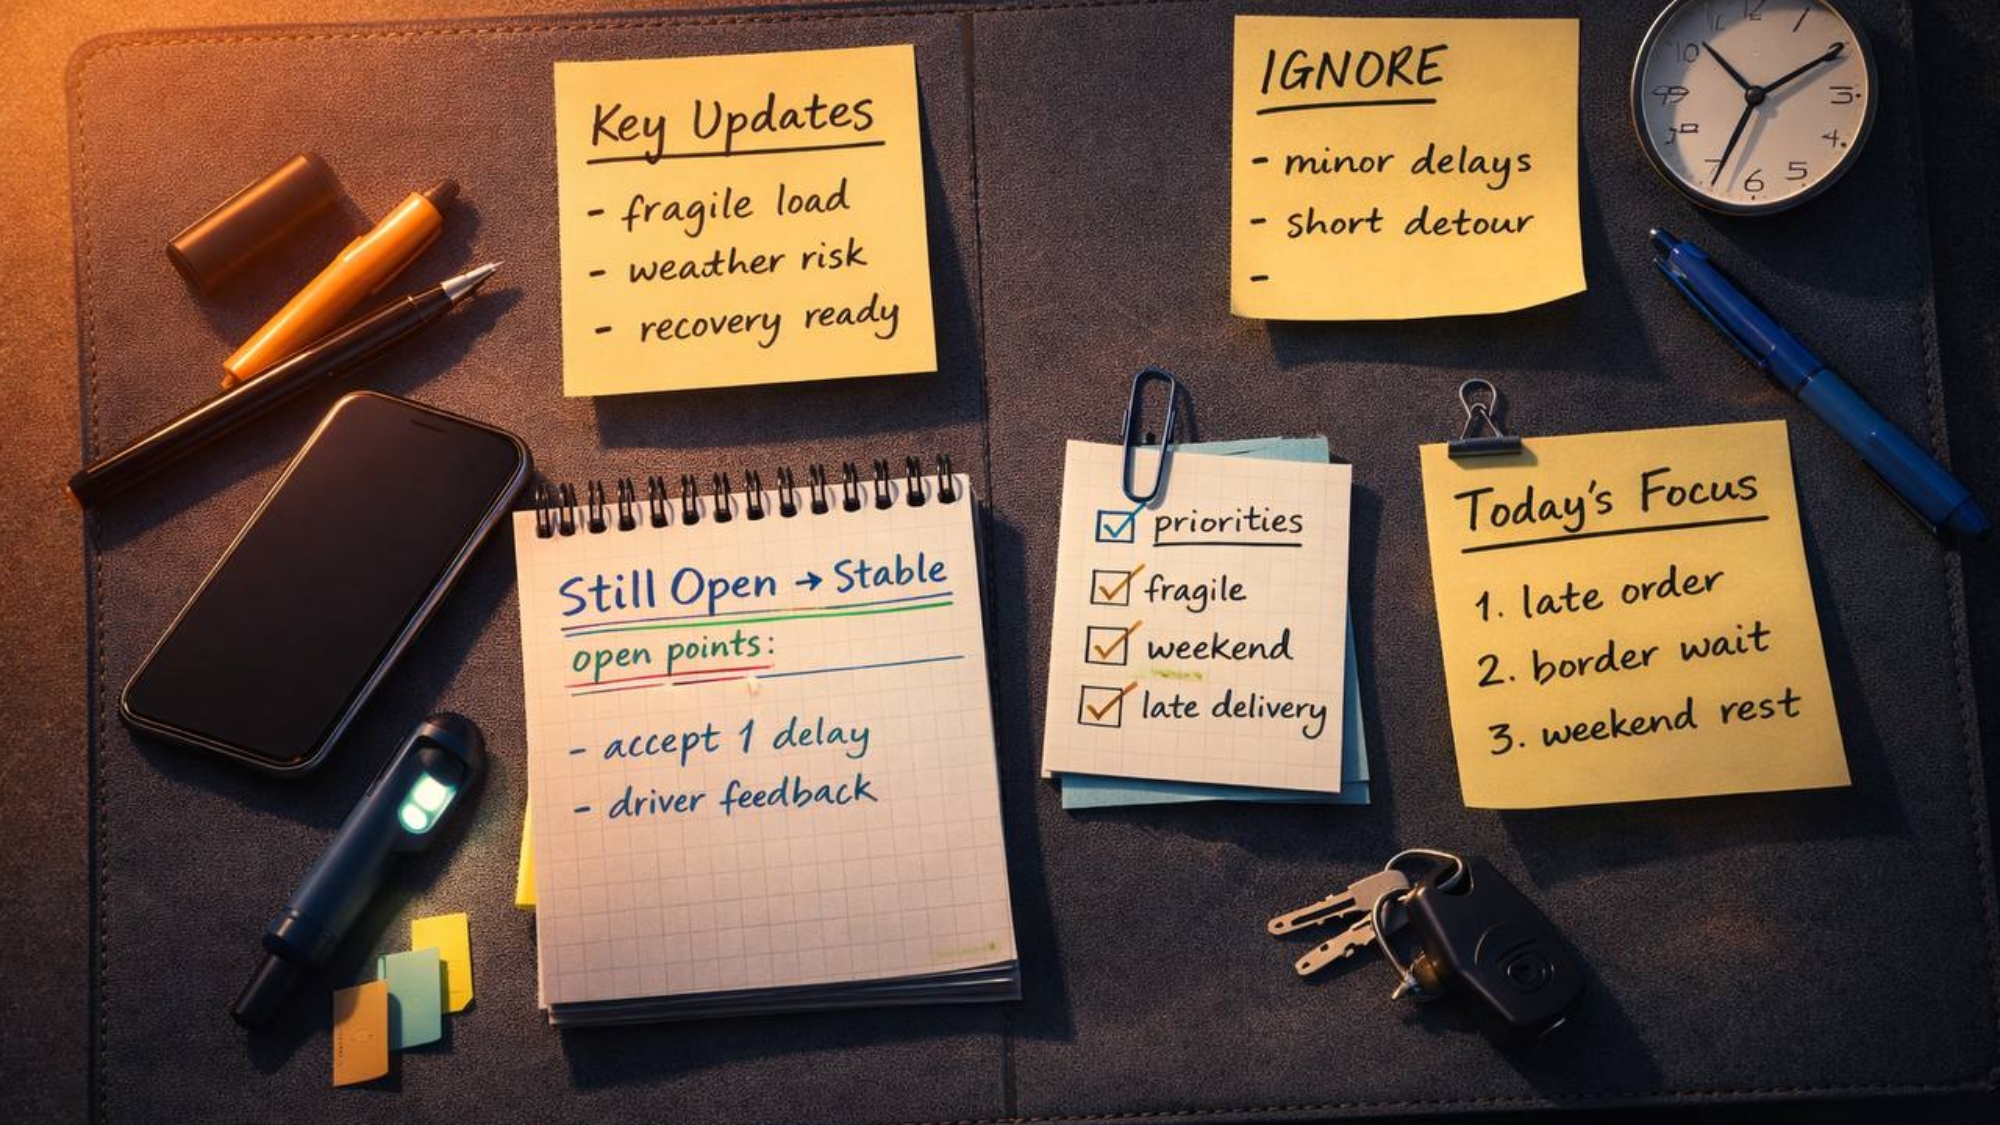 Key Updates
- fragile load
- weather risk
- recovery ready
IGNORE
- minor delays
- short detour
-
12
1
10
2
3
4
5
6
7
Still Open → Stable
open points:
- accept 1 delay
- driver feedback
priorities
fragile
weekend
late delivery
Today's Focus
1. late order
2. border wait
3. weekend rest